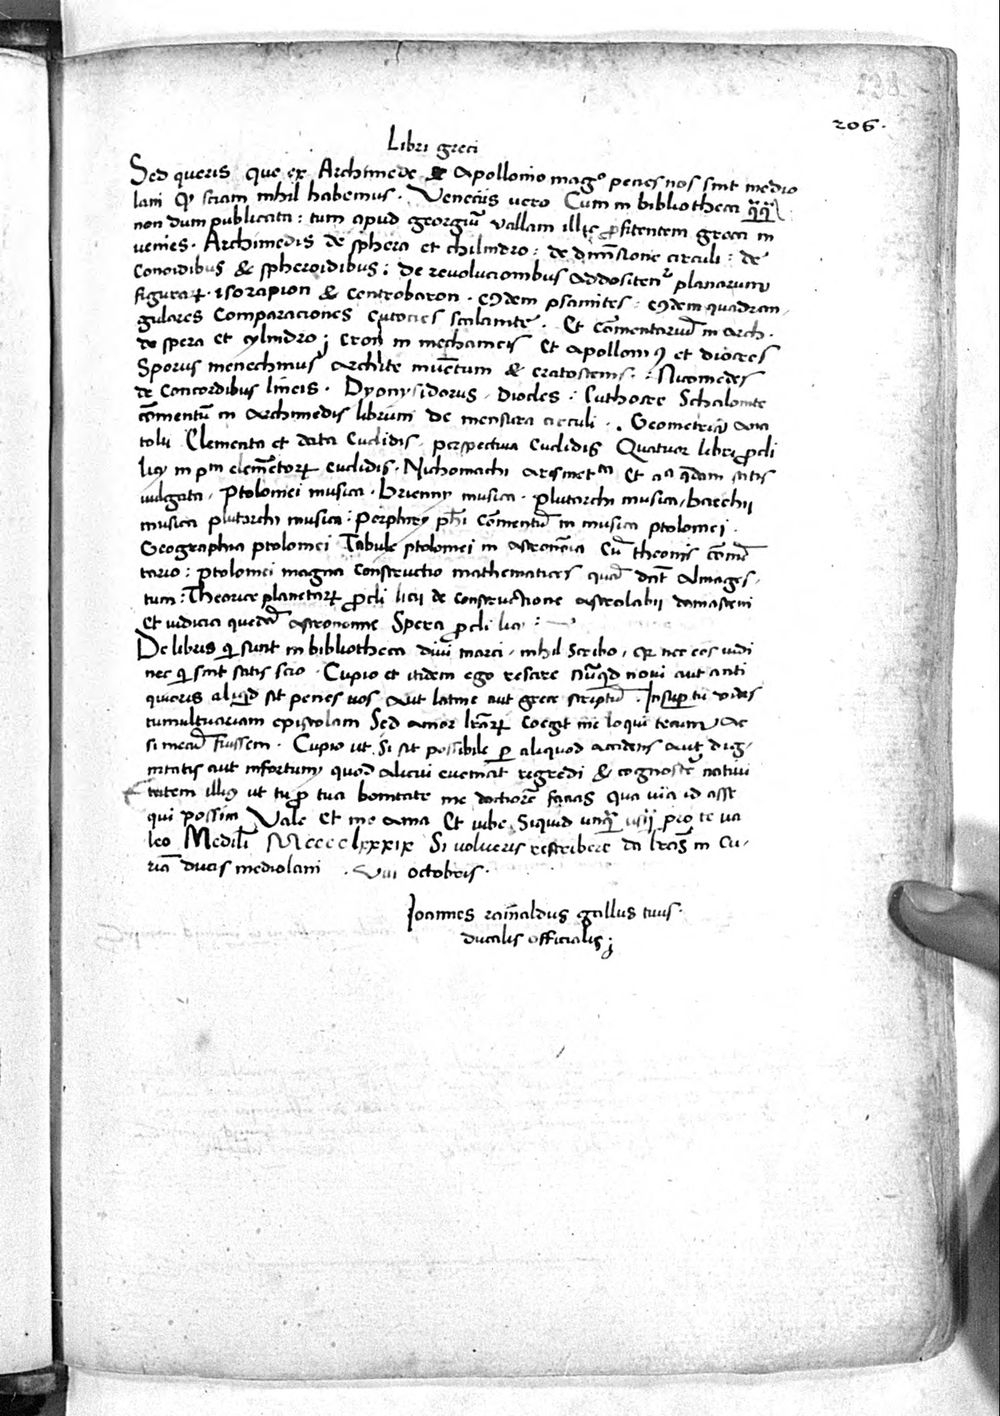 238
206.
Libri greci
Sed queris que ex Archimede & Apollonio mag° penes nos sint medio
lani qͥ sciam nihil habemus. Veneciis vero Cum in bibliotheca
non dum publicata: tum apud georgiū vallam illic ꝓfitentem greca in
venies. Archimedis de sphera et chilindro: de dimēsione circuli: de
Conoidibus & spheroidibus: de revolucionibus
figurarꝝ. isorapion & centrobaron. eiusdem psamites: eiusdem quadran,
gulares Comparaciones eutocies scalamite. Et cōmentariū in Arch.
de spera et cylindro; eron in mechanicis Et Apollonius et diocres
Sporus menechmus Archite inuētum & eratostenis: Nicomedes
de Concordibus lineis. Dyonysidorus, diocles: Euthocce Schalomite
cōmentū in Archimedis librum de mensura circuli. Geometria Ana
tolii Elementa et data Euclidis. perspectiua Euclidis Quatuor libri ꝓcli
licij in pm elemētorꝝ euclidis. Nichomachi Arismetca Et
uulgata. ptolomei musica. brienny musica. plutarchi musica, bacchij
musica plutarchi musica: porphirij phi Cōmentū in musica ptolomei.
Geographia ptolomei Tabule ptolomei in astronōia Cū theonis cōmē
tario: ptolomei magna constructio mathematices quā dnt Almages,
tum: Theorice planetarꝝ ꝓcli licii de constructione astrolabii damasceni
Et iudicia quedā astronomie Spera ꝓcli lici:
De libris qͥ sunt in bibliotheca diui marci, nihil Scribo, qꝛ nec eos uidi
nec qͥ sint satis scio. Cupio et itidem ego rescire nūqͥd noui aut anti
quioris aliqͥd sit penes uos Aut latine aut grece scriptū. Insuꝑ tu vides
tumultuariam epistolam Sed amor lrārꝝ coegit me loqui tecum Ac
si mecū fuissem. Cupio ut si sit possibile ꝑ aliquod accidens aut dig,
nitatis aut infortunij quod alicui eueniat regredi & cognoscere natiui
tatem illius ut tu ꝓ tua bonitate me doctiorē facias qua uia id asse
qui possim Vale Et me ama Et iube Siquid unqͣ usij pro te va
leo Medilī Mcccclxxxix Si volueris rescribere da lrās in Cu,
riā ducis mediolani. viii octobris.
Joannes rainaldus gallus tuus.
ducalis officialis;